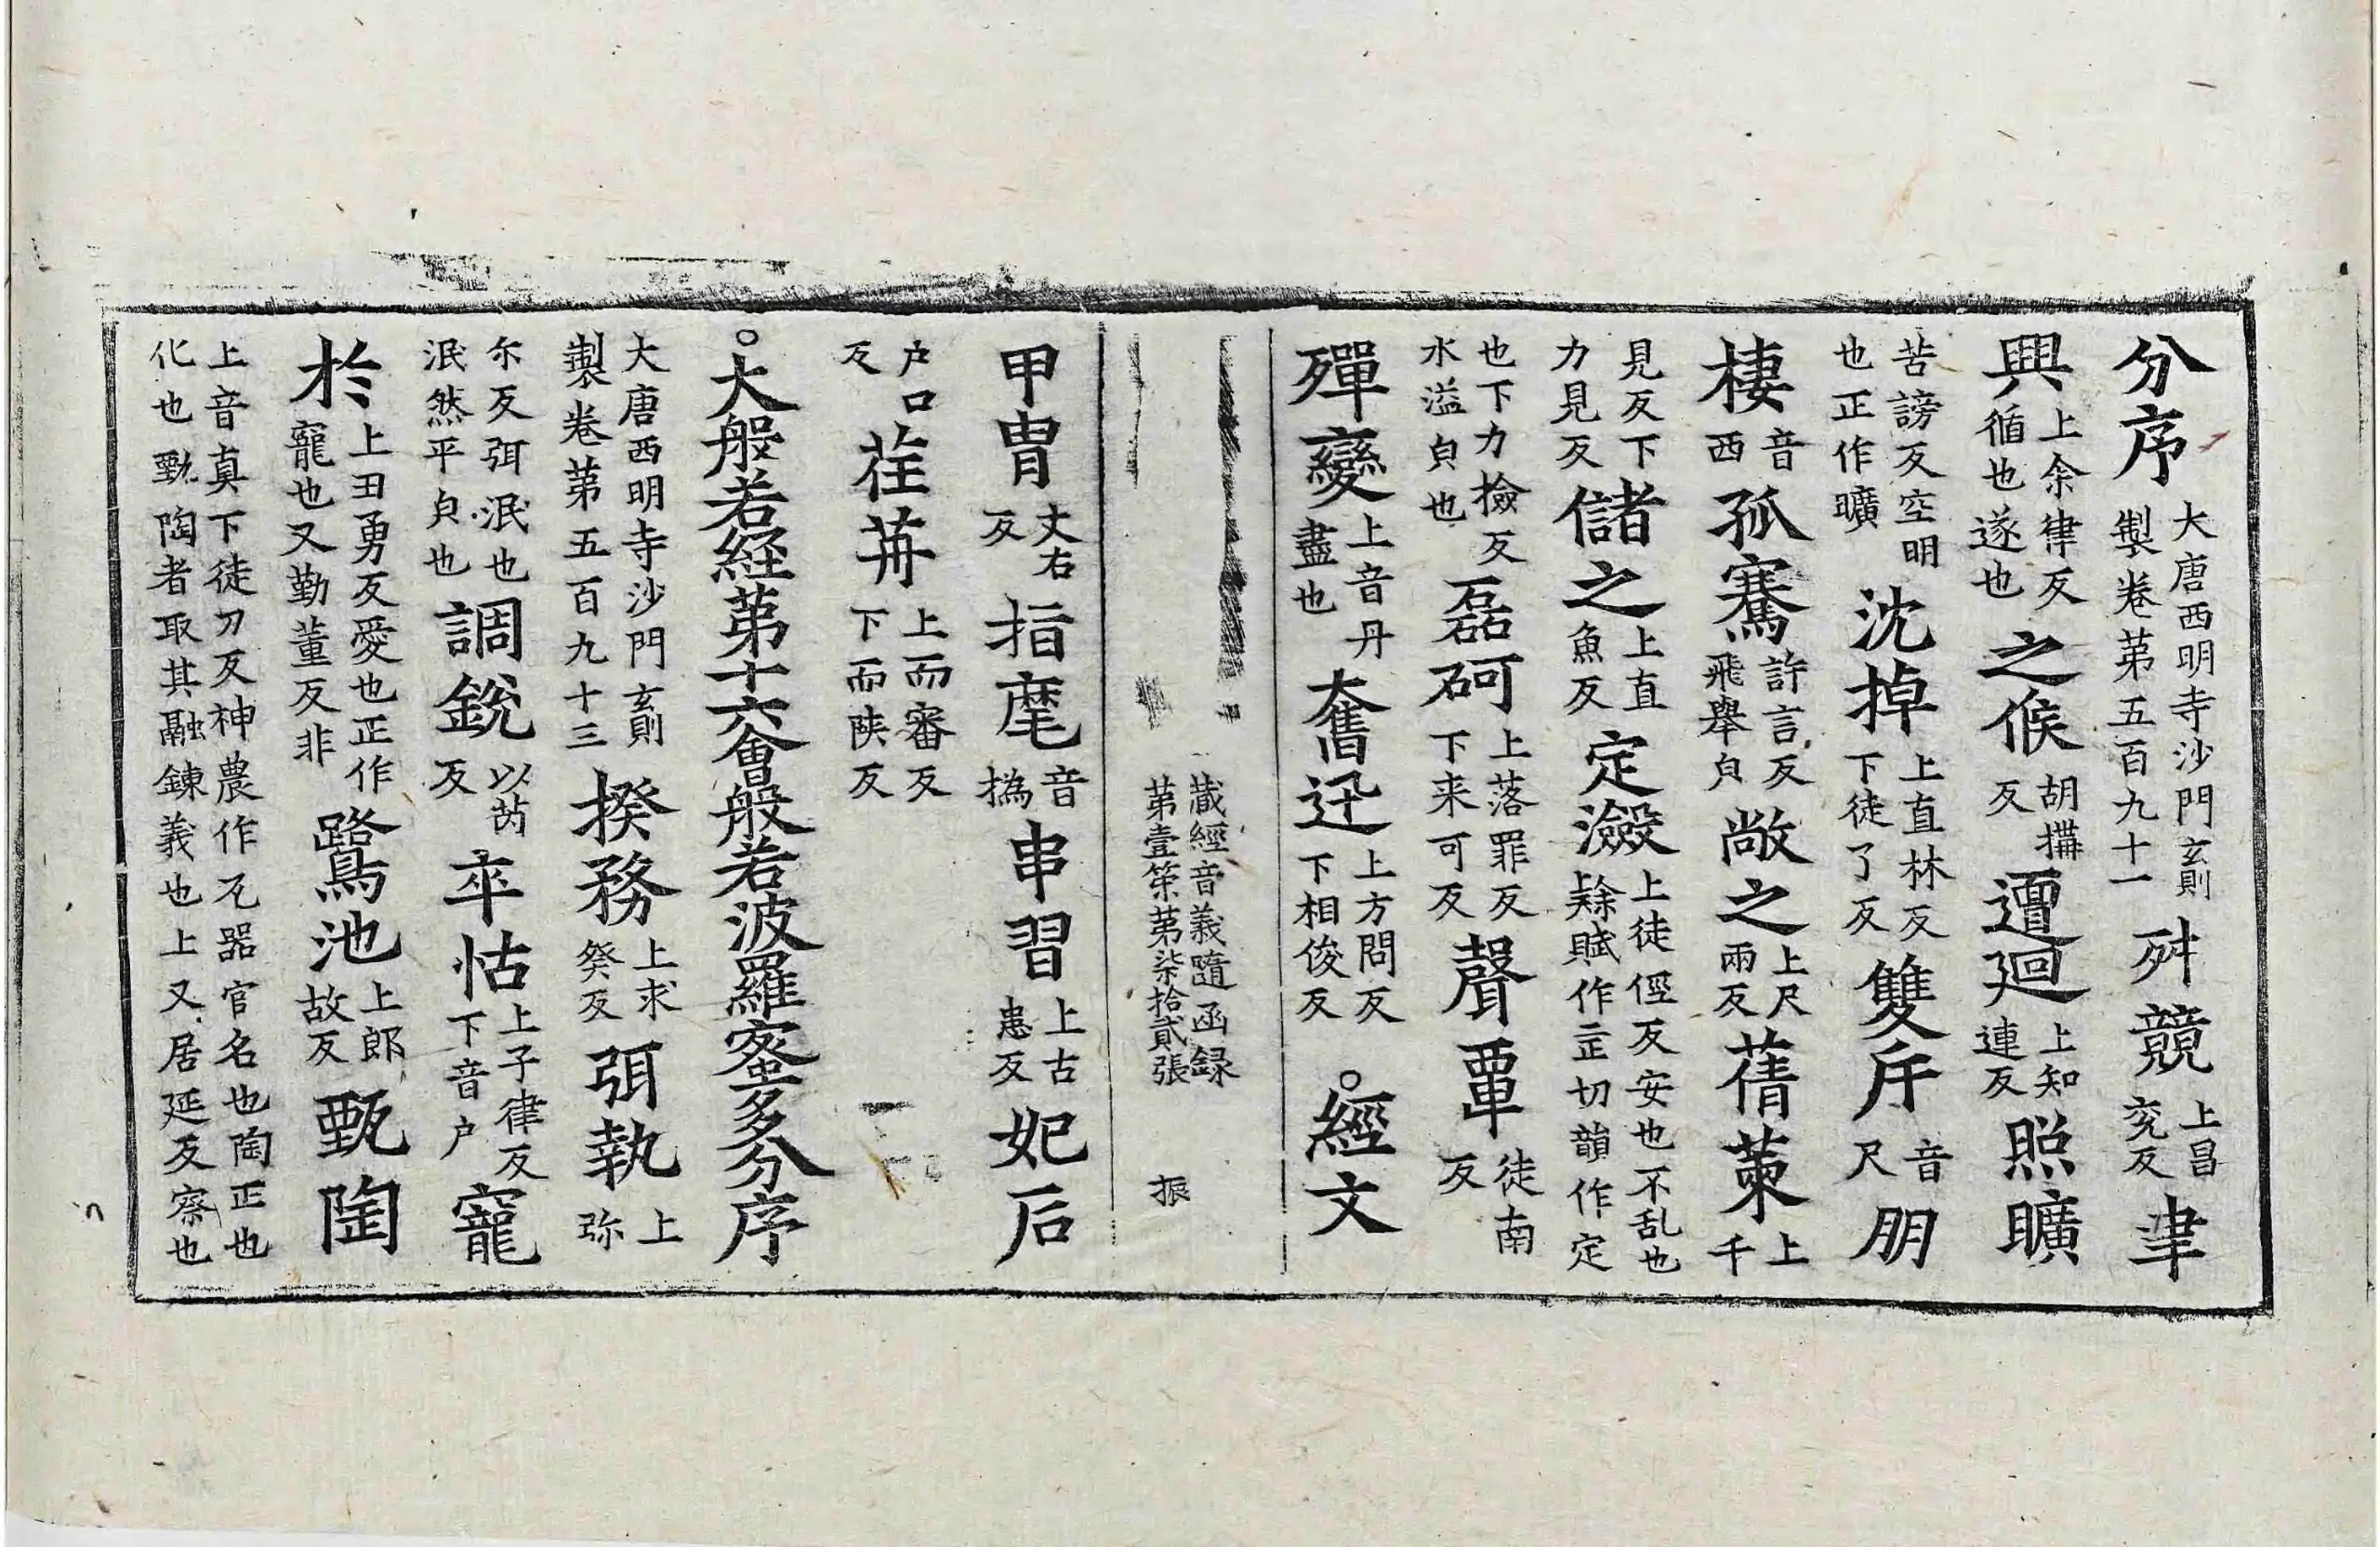 分序大唐西明寺沙門玄則製卷第五百九十一舛競上昌兖反聿
興上余律反循也遂也之候胡搆反邅迴上知連反照曠
苦謗反空明也正作曠沈掉上直林反下徒了反雙斥音尺朋
棲音西孤騫許言反飛舉皃敞之上尺兩反蒨菄上千
見反下力見反儲之上直魚反定瀲上徒徑反安也不乱也賦作正切韻作定
也下力撿反水溢皃也磊砢上落罪反下来可反聲覃徒南反
殫變上音丹盡也奮迅上方問反下相俊反○經文
藏經音義隨函録第壹筞第柒拾貳張 振
甲胄丈右反指麾音撝串習上古患反妃后
户口反荏苒上而審反下而陕反
○大般若経第十六會般若波羅蜜多分序
大唐西明寺沙門玄則製卷第五百九十三揆務上求癸反弭執上弥
尓反弭泯也泯然平皃也調銳以芮反卒怙上子律反下音户寵
於上丑勇反愛也正作寵也又勤董反非鷺池上郎故反甄陶
上音真下徒刀反神農作瓦器官名也陶正也化也甄陶者取其融鍊義也上又居延反察也